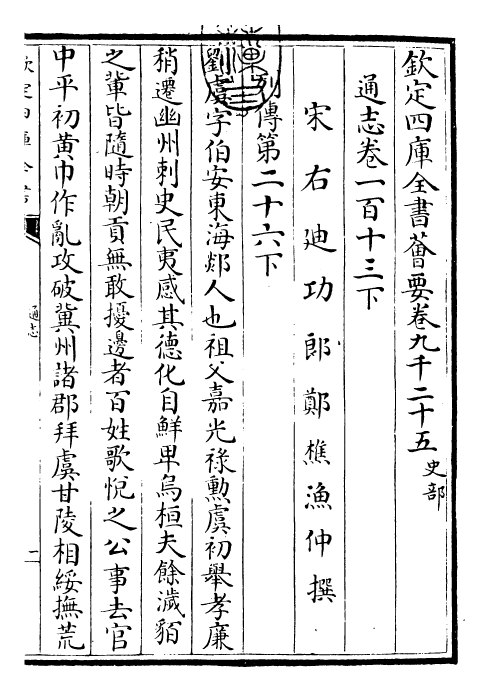 欽定四庫全書薈要卷九千二十五 史部
通志卷一百十三下
宋右迪功郎鄭樵漁仲撰
列傳第二十六下
劉虞字伯安東海郯人也祖父嘉光祿勲虞初舉孝廉
稍遷幽州刺史民夷感其德化自鮮卑烏桓夫餘濊貊
之軰皆隨時朝貢無敢擾邊者百姓歌悅之公事去官
中平初黄巾作亂攻破冀州諸郡拜虞甘陵相綏撫荒
通志